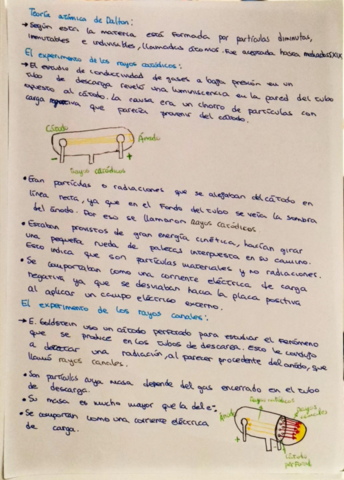 Teoría atómica de Dalton:
→ Según esta la materia está formada por partículas diminutas,
inmutables e indivisibles, llamadas átomos. Fue aceptada hasta mediados XIX
El experimento de los rayos catódicos:
→ El estudio de conductividad de gases a baja presión en un
tubo de descarga reveló una luminiscencia en la pared del tubo
opuesto al cátodo. La causa era un chorro de partículas con
carga negativa que parecía provenir del cátodo.
Cátodo
Ánodo
-
+
Rayos catódicos
• Eran partículas o radiaciones que se alejaban del cátodo en
línea recta, ya que en el fondo del tubo se veía la sombra
del ánodo. Por eso se llamaron rayos catódicos
• Estaban provistos de gran energía cinética, hacían girar
una pequeña rueda de paletas interpuesta en su camino.
Esto indica que son partículas materiales y no radiaciones.
• Se comportaban como una corriente eléctrica de carga
negativa ya que se desviaban hacia la placa positiva
al aplicar un campo eléctrico externo.
El experimento de los rayos canales:
→ E. Goldstein usó un cátodo perforado para estudiar el fenómeno
que se produce en los tubos de descarga. Esto le condujo
a detectar una radiación, al parecer procedente del ánodo, que
llamó rayos canales.
• Son partículas cuya masa depende del gas encerrado en el tubo
de descarga.
• Su masa es mucho mayor que la del e-
• Se comportan como una corriente eléctrica
de carga
Rayos catódicos
Rayos canales
Ánodo
+
Cátodo
perforado